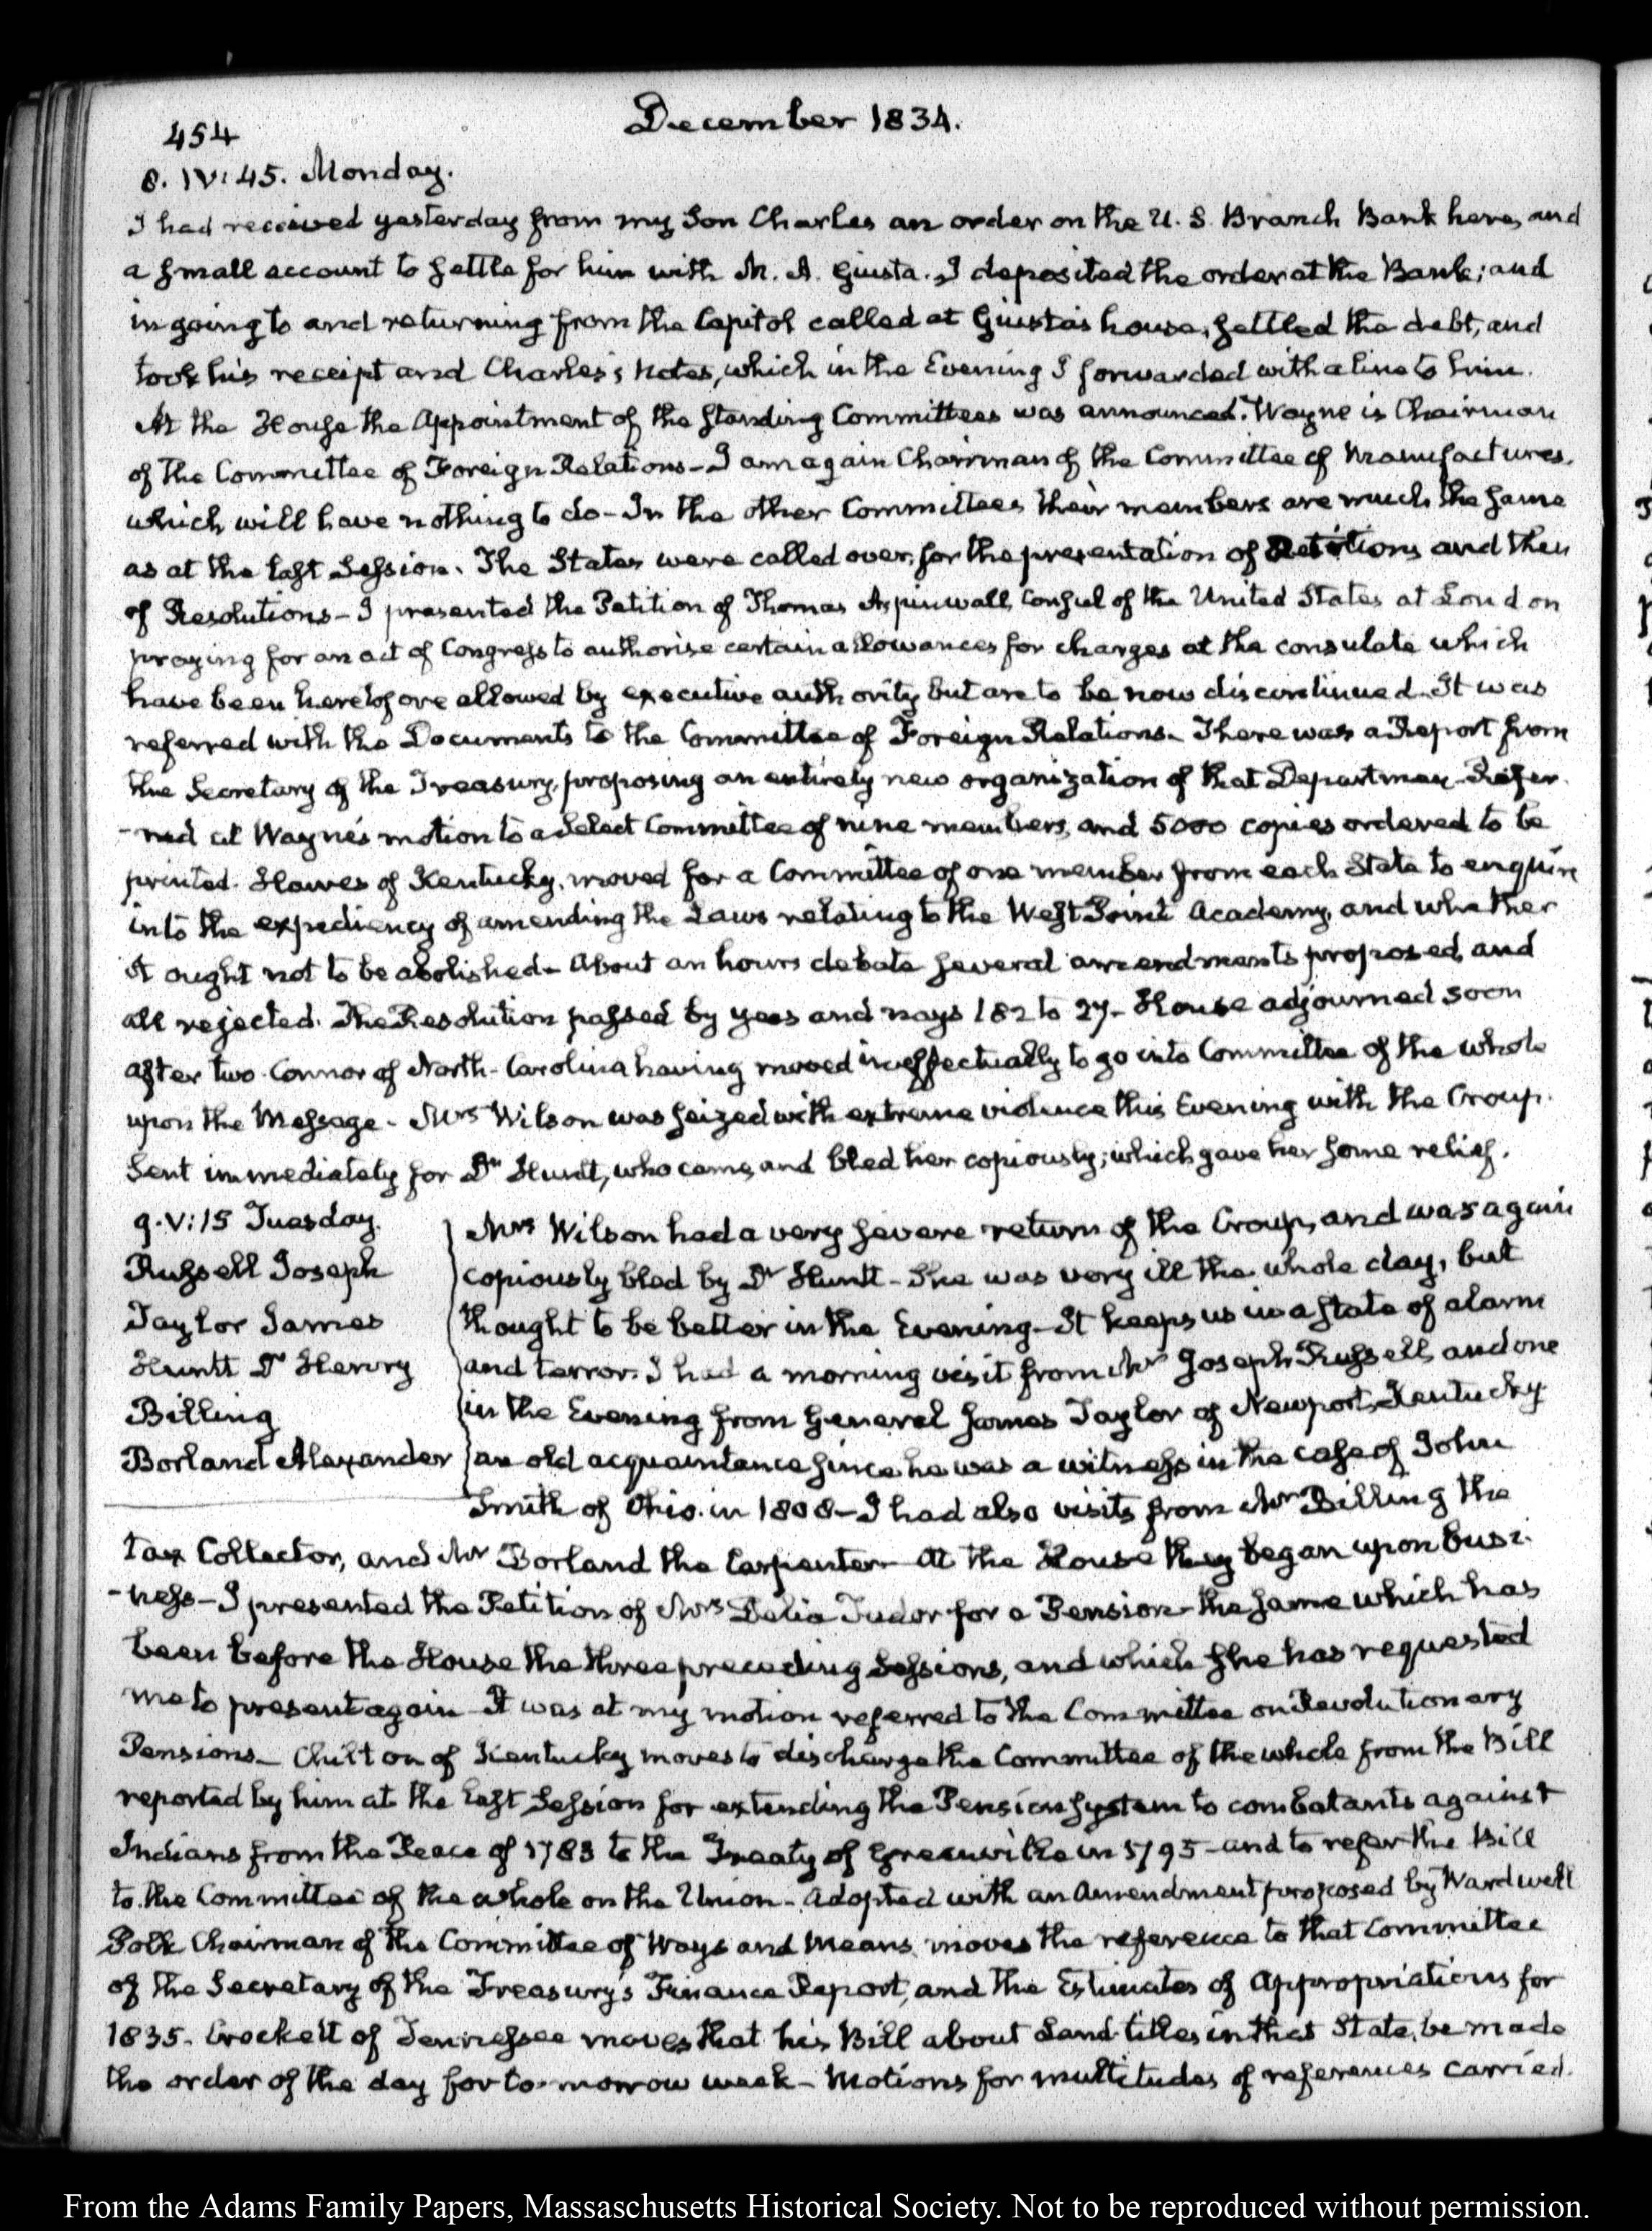 454
December 1834.
8. IV:45. Monday.
I had received yesterday from my Son Charles an order on the U. S. Branch Bank here, and
a small account to settle for him with M. A. Giusta. I deposited the order at the Bank; and
in going to and returning from the Capitol called at Giusta's house, settled the debt, and
took his receipt and Charles's notes, which in the Evening I forwarded with a line to him.
At the House the Appointment of the standing Committees was announced. Wayne is Chairman
of the Committee of Foreign Relations – I am again Chairman of the Committee of Manufactures,
which will have nothing to do – In the other Committees their members are much the same
as at the last Session. The States were called over, for the presentation of Petitions and then
of Resolutions – I presented the Petition of Thomas Aspinwall, Consul of the United States at London
praying for an act of Congress to authorise certain allowances for charges at the consulate which
have been heretofore allowed by executive authority but are to be now discontinued. It was
referred with the Documents to the Committee of Foreign Relations – There was a Report from
the Secretary of the Treasury, proposing an entirely new organization of that Department. Refer
-red at Wayne's motion to a Select Committee of nine members, and 5000 copies ordered to be
printed. Hawes of Kentucky, moved for a Committee of one member from each State to enquire
into the expediency of amending the Laws relating to the West Point Academy, and whether
it ought not to be abolished – About an hours debate several amendments proposed, and
all rejected. The Resolution passed by yeas and nays 182 to 27 – House adjourned soon
after two. Connor of North-Carolina having moved ineffectually to go into Committee of the whole
upon the Message – Mrs Wilson was seized with extreme violence this Evening with the Croup.
Sent immediately for Dr Huntt, who came, and bled her copiously; which gave her some relief.
9. V:15 Tuesday.
Russell Joseph
Taylor James
Huntt Dr Henry
Billing
Borland Alexander
Mrs Wilson had a very severe return of the Croup, and was again
copiously bled by Dr Huntt – She was very ill the whole day, but
thought to be better in the Evening – It keeps us in a state of alarm
and terror. I had a morning visit from Mr Joseph Russell, and one
in the Evening from General James Taylor of Newport, Kentucky
an old acquaintance since he was a witness in the case of John
Smith of Ohio. in 1808 – I had also visits from Mr Billing the
tax Collector, and Mr Borland the Carpenter – At the House they began upon busi-
-ness – I presented the Petition of Mrs Delia Tudor for a Pension – the same which has
been before the House the three preceding Sessions, and which she has requested
me to present again – It was at my motion referred to the Committee on Revolutionary
Pensions – Chilton of Kentucky moves to discharge the Committee of the whole from the Bill
reported by him at the last Session for extending the Pension system to combatants against
Indians from the Peace of 1783 to the Treaty of Greenville in 1795 – and to refer the Bill
to the Committee of the whole on the Union – Adopted with an Amendment proposed by Wardwell
Polk Chairman of the Committee of Ways and Means, moves the reference to that Committee
of the Secretary of the Treasury's Finance Report, and the Estimates of Appropriations for
1835. Crockett of Tennessee moves that his Bill about Land-titles in that State, be made
the order of the day for to-morrow week – Motions for multitudes of references carried.
From the Adams Family Papers, Massachusetts Historical Society. Not to be reproduced without permission.